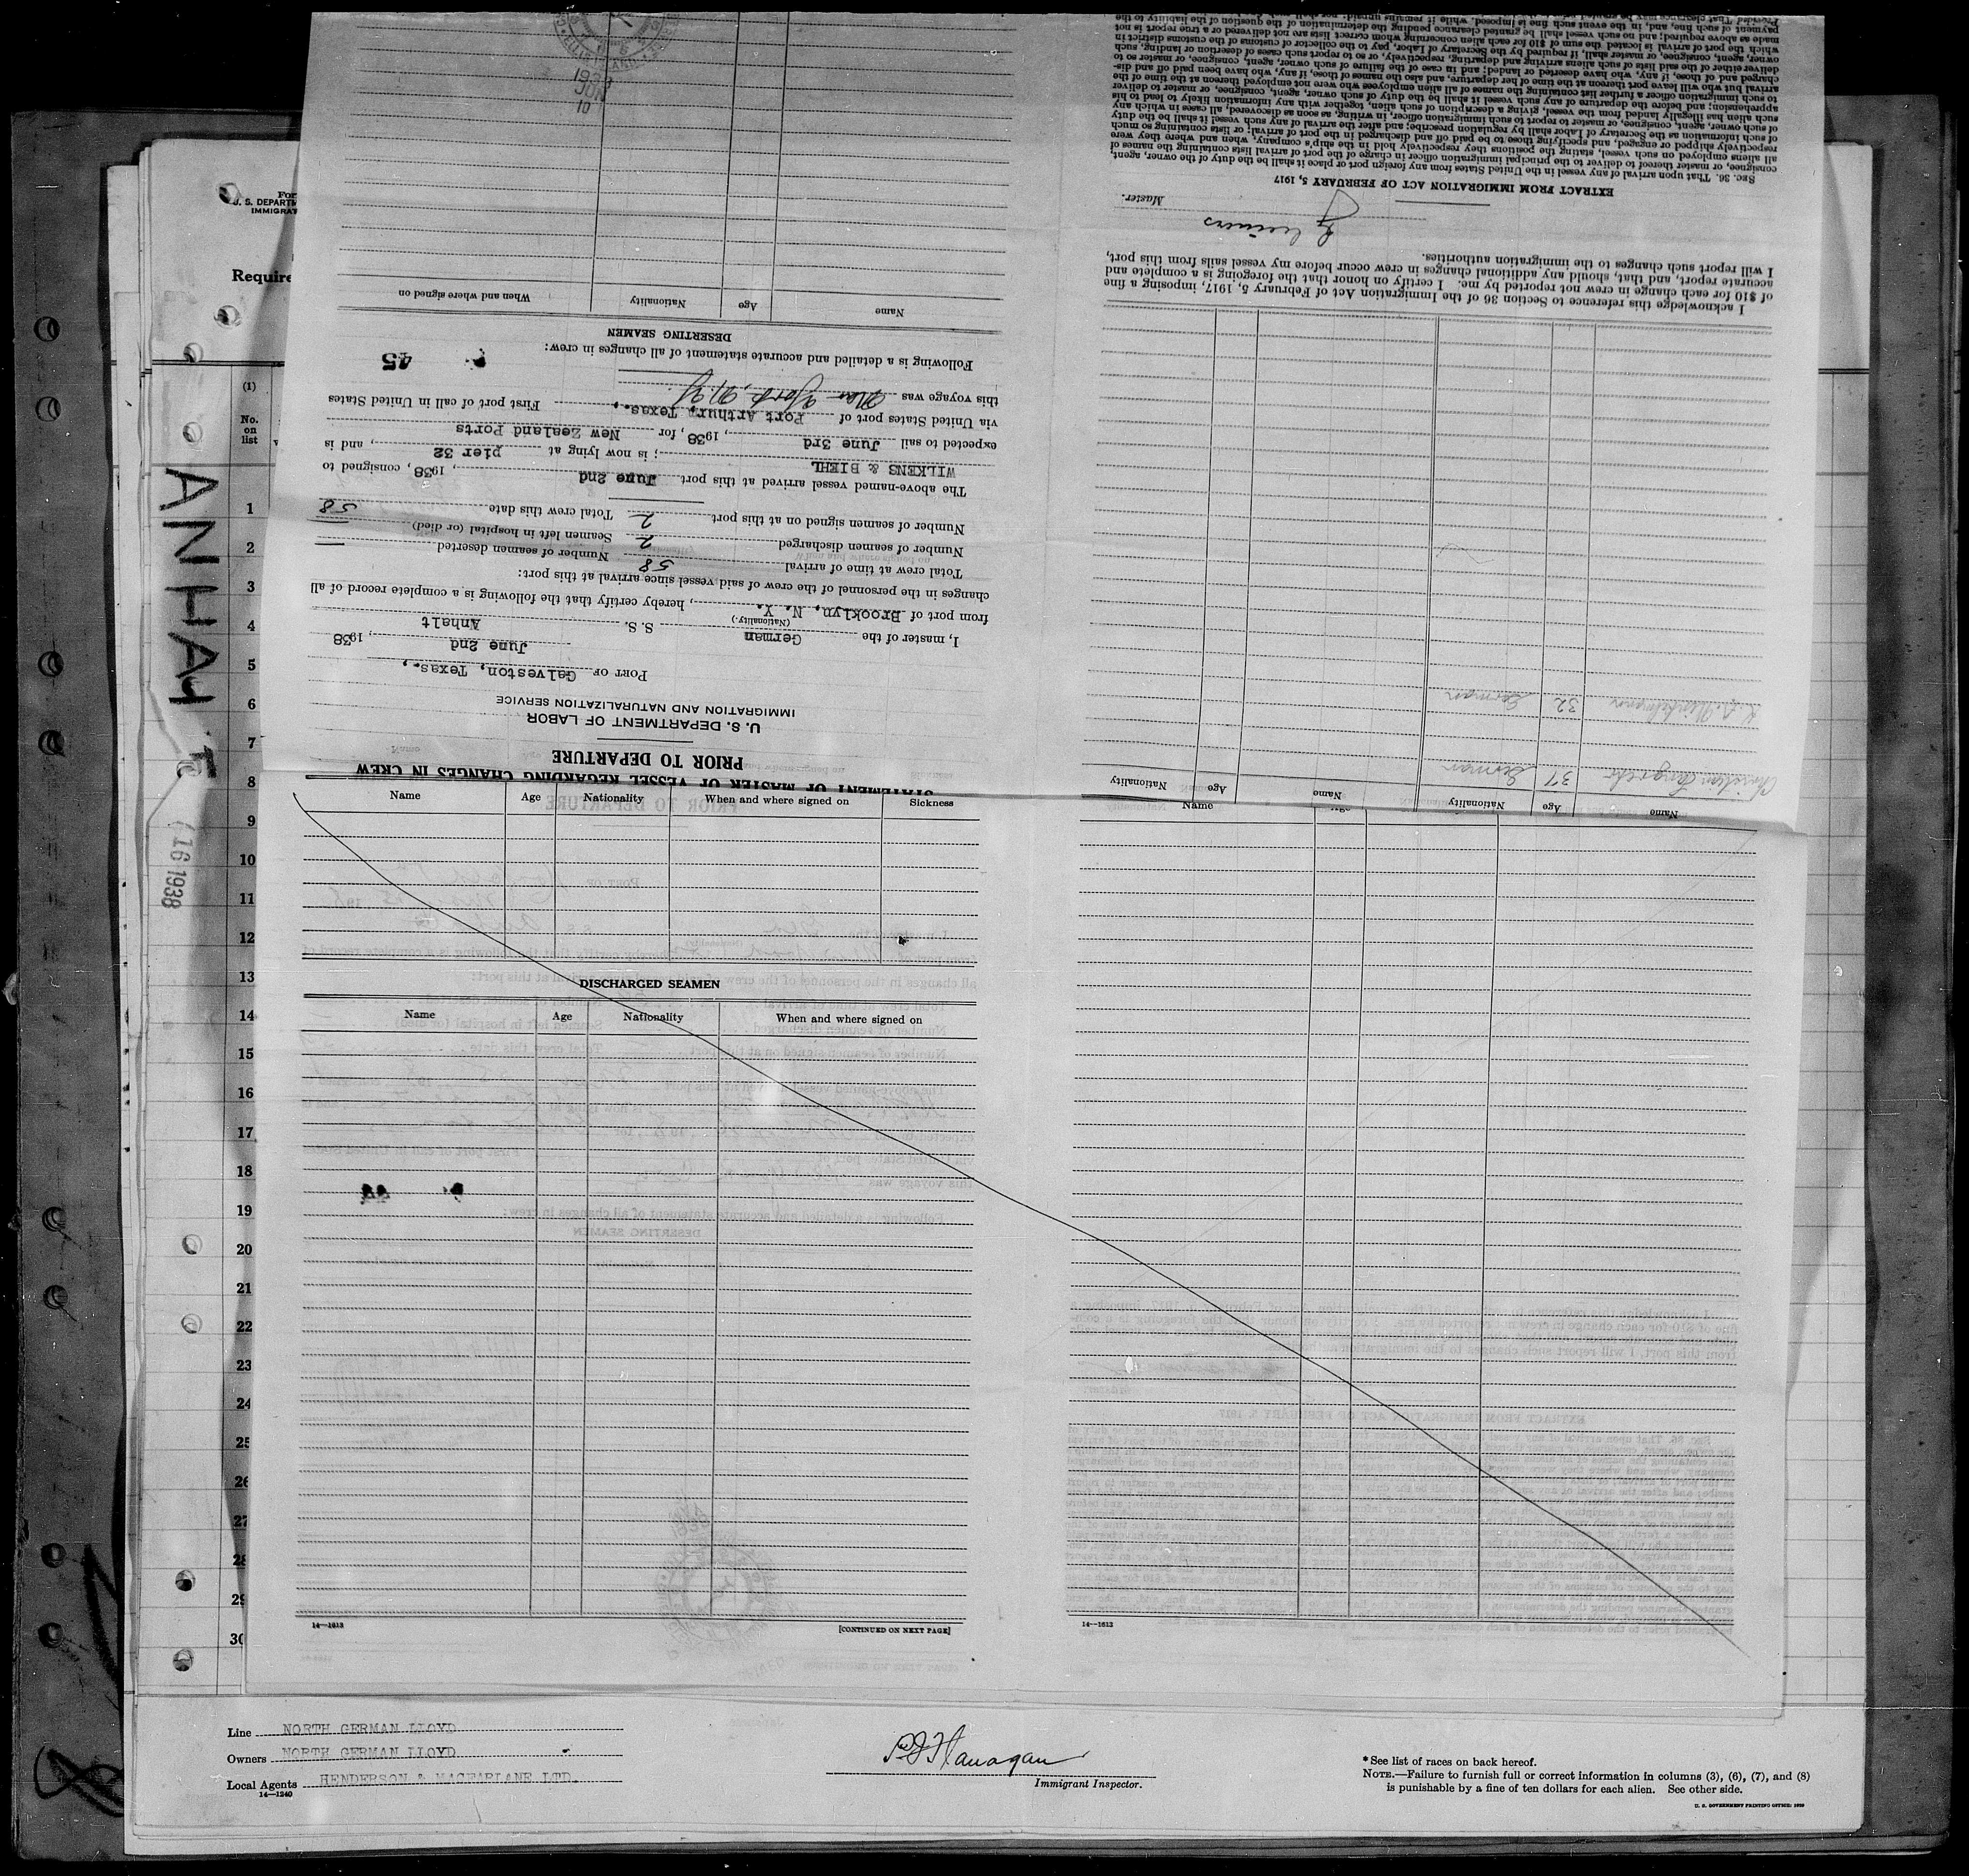 For
U. S. DEPARTM
IMMIGRAT
Require
(1)
No.
on
list
1
2
3
4
5
6
7
8
9
10
11
12
13
14
15
16
17
18
19
20
21
22
23
24
25
26
27
28
29
30
ANHALT
16 1938
STATEMENT OF MASTER OF VESSEL REGARDING CHANGES IN CREW
PRIOR TO DEPARTURE
U. S. DEPARTMENT OF LABOR
IMMIGRATION AND NATURALIZATION SERVICE
PORT OF Galveston, Texas.,
June 2nd, 1938
I, master of the German S. S. Anhalt
(Nationality.)
from port of Brooklyn, N. Y., hereby certify that the following is a complete record of all
changes in the personnel of the crew of said vessel since arrival at this port:
Total crew at time of arrival 58 Number of seamen deserted —
Number of seamen discharged 2 Seamen left in hospital (or died) —
Number of seamen signed on at this port 2 Total crew this date 58
The above-named vessel arrived at this port June 2nd, 1938, consigned to
WILKENS & BIEHL; is now lying at pier 32, and is
expected to sail June 3rd, 1938, for New Zealand Ports
via United States port of Port Arthur, Texas., First port of call in United States
this voyage was New York, N.Y.
Following is a detailed and accurate statement of all changes in crew:
45
DESERTING SEAMEN
Name Age Nationality When and where signed on
ELLIS ISLAND
1938
JUN
10
Name Age Nationality Name Age Nationality
Christian 37 German
32 German
I acknowledge this reference to Section 36 of the Immigration Act of February 5, 1917, imposing a fine
of $10 for each change in crew not reported by me. I certify on honor that the foregoing is a complete and
accurate report, and that, should any additional changes in crew occur before my vessel sails from this port,
I will report such changes to the immigration authorities.
Master.
EXTRACT FROM IMMIGRATION ACT OF FEBRUARY 5, 1917
SEC. 36. That upon arrival of any vessel in the United States from any foreign port or place it shall be the duty of the owner, agent,
consignee, or master thereof to deliver to the principal immigration officer in charge of the port of arrival lists containing the names of
all aliens employed on such vessel, stating the positions they respectively hold in the ship's company, when and where they were
respectively shipped or engaged, and specifying those to be paid off and discharged in the port of arrival; or lists containing so much
of such information as the Secretary of Labor shall by regulation prescribe; and after the arrival of any such vessel it shall be the duty
of such owner, agent, consignee, or master to report to such immigration officer, in writing, as soon as discovered, all cases in which any
such alien has illegally landed from the vessel, giving a description of such alien, together with any information likely to lead to his
apprehension; and before the departure of any such vessel it shall be the duty of such owner, agent, consignee, or master to deliver
to such immigration officer a further list containing the names of all alien employees who were not employed thereon at the time of the
arrival but who will leave port thereon at the time of her departure, and also the names of those, if any, who have been paid off and dis-
charged and of those, if any, who have deserted or landed; and in case of the failure of such owner, agent, consignee, or master so to
deliver either of the said lists of such aliens arriving and departing, respectively, or so to report such cases of desertion or landing, such
owner, agent, consignee, or master, shall, if required by the Secretary of Labor, pay to the collector of customs of the customs district in
which the port of arrival is located the sum of $10 for each alien concerning whom correct lists are not delivered or a true report is not
made as above required; and no such vessel shall be granted clearance pending the determination of the question of the liability to the
payment of such fine, and, in the event such fine is imposed, while it remains unpaid; nor shall
Name Age Nationality When and where signed on Sickness
DISCHARGED SEAMEN
Name Age Nationality When and where signed on
14—1613
[CONTINUED ON NEXT PAGE]
Name
14—1613
Line NORTH GERMAN LLOYD
Owners NORTH GERMAN LLOYD
Local Agents HENDERSON & MACFARLANE LTD.
14—1240
Flanagan
Immigrant Inspector.
*See list of races on back hereof.
NOTE.—Failure to furnish full or correct information in columns (3), (6), (7), and (8)
is punishable by a fine of ten dollars for each alien. See other side.
U. S. GOVERNMENT PRINTING OFFICE: 1929